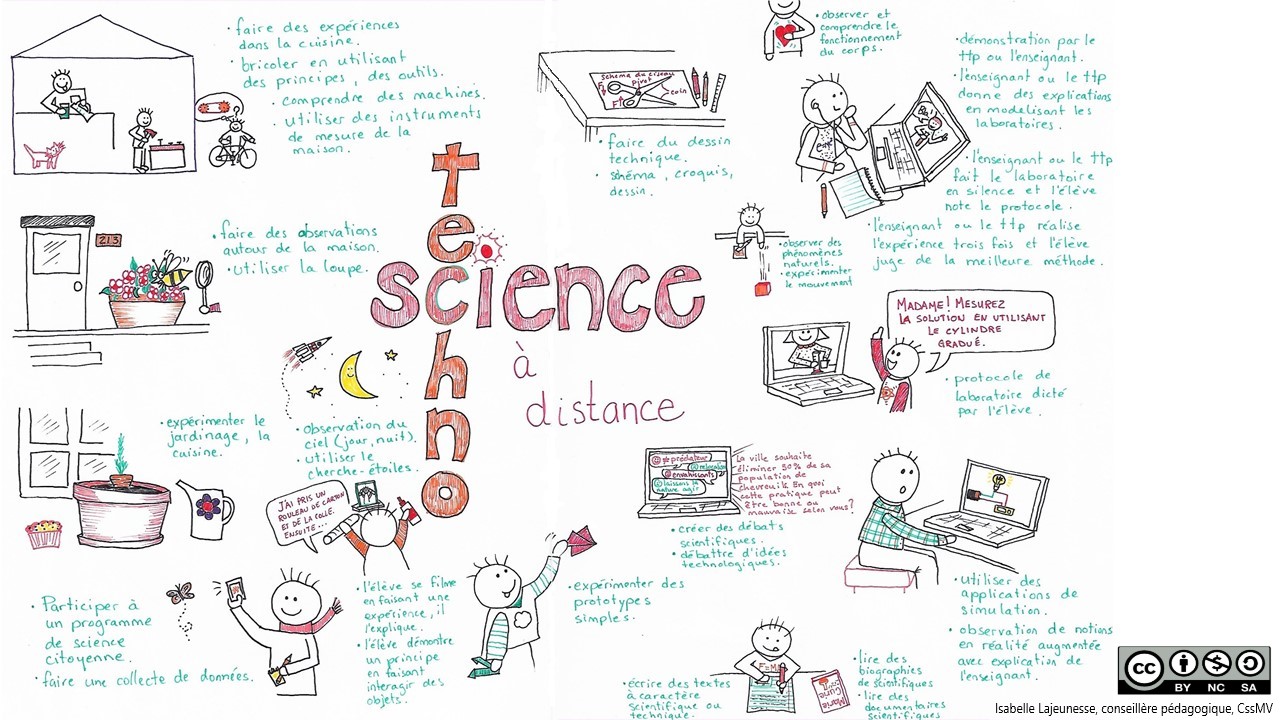 techno
science
à
distance
• faire des expériences
dans la cuisine.
• bricoler en utilisant
des principes, des outils.
• comprendre des machines.
• utiliser des instruments
de mesure de la
maison.
213
• faire des observations
autour de la maison.
• utiliser la loupe.
• expérimenter le
jardinage, la
cuisine.
• observation du
ciel (jour, nuit).
• utiliser le
cherche-étoiles.
J'AI PRIS UN
ROULEAU DE CARTON
ET DE LA COLLE.
ENSUITE...
• Participer à
un programme
de science
citoyenne.
• faire une collecte de données.
• l'élève se filme
en faisant une
expérience, il
l'explique.
• l'élève démontre
un principe
en faisant
interagir des
objets.
• expérimenter des
prototypes
simples.
schéma du ciseau
pivot
coin
F
F
• faire du dessin
technique.
• schéma, croquis,
dessin.
• observer et
comprendre le
fonctionnement
du corps.
• démonstration par le
ttp ou l'enseignant.
• l'enseignant ou le ttp
donne des explications
en modélisant les
laboratoires.
• l'enseignant ou le ttp
fait le laboratoire
en silence et l'élève
note le protocole.
• l'enseignant ou le ttp réalise
l'expérience trois fois et l'élève
juge de la meilleure méthode.
• observer des
phénomènes
naturels.
• expérimenter
le mouvement
MADAME! MESUREZ
LA SOLUTION EN UTILISANT
LE CYLINDRE
GRADUÉ.
• protocole de
laboratoire dicté
par l'élève.
@ #prédateur
@relocation
@envahissants
@laissons la
nature agir
La ville souhaite
éliminer 50% de sa
population de
chevreuils. En quoi
cette pratique peut
être bonne ou
mauvaise selon vous?
• créer des débats
scientifiques.
• débattre d'idées
technologiques.
• utiliser des
applications de
simulation.
• observation de notions
en réalité augmentée
avec explication de
l'enseignant.
• écrire des textes
à caractère
scientifique ou
technique.
Marie
Curie
• lire des
biographies
de scientifiques
• lire des
documentaires
scientifiques
cc
BY NC SA
Isabelle Lajeunesse, conseillère pédagogique, CssMV